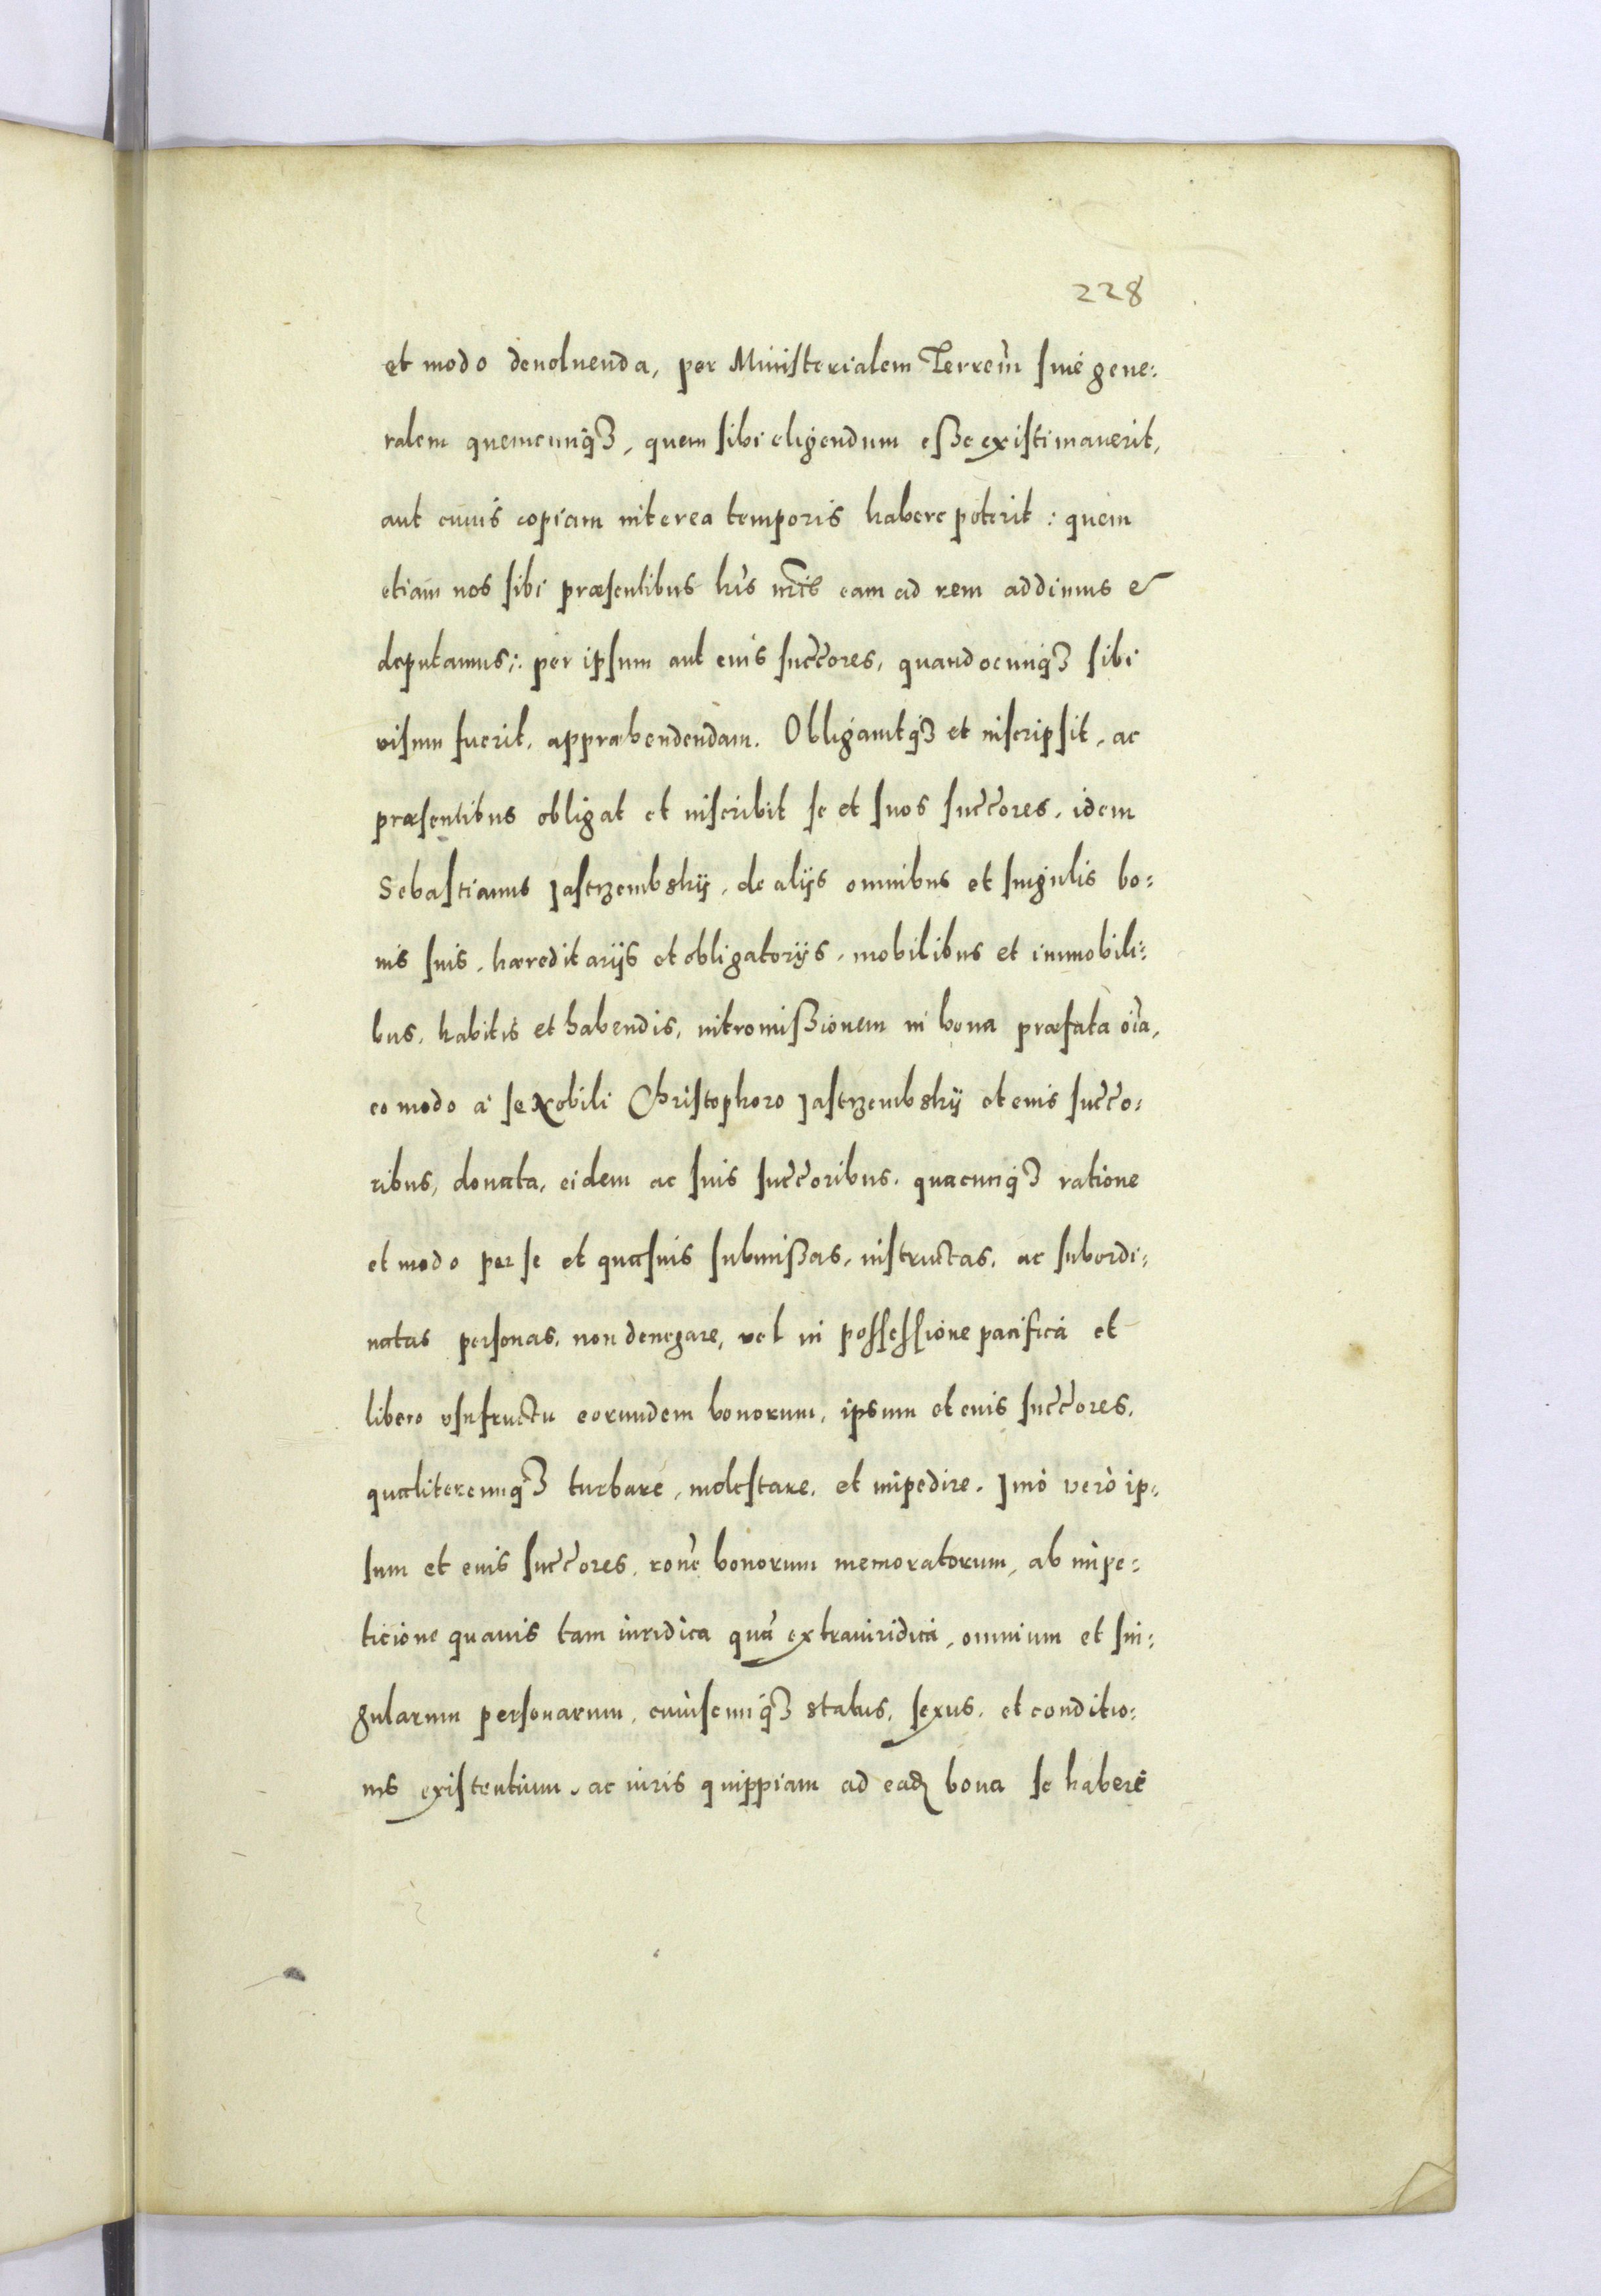 228
et modo deuoluenda, per Ministerialem Terrem̃ siue gene:
ralem quemcunqȝ, quem sibi eligendum eße existimauerit,
aut cuius copiam interea temporis habere poterit : quem
etiam nos sibi præsentibus his nr̃is eam ad rem addimus &
deputamus;: per ipsum aut eius succ̃ores, quandocunqȝ sibi
visum fuerit, appræhendendam. Obligauitqȝ et inscripsit, ac
præsentibus obligat et inscribit se et suos succ̃ores, idem
Sebastianus Jastrzembskÿ, de alÿs omnibus et singulis bo:
nis suis, hæreditarÿs et obligatorÿs, mobilibus et immobili:
bus, habitis et habendis, intromißionem in bona præfata oı̃a,
eo modo à se Nobili Christophoro Jastrzembskÿ et eius succ̃o:
ribus, donata, eidem ac suis succ̃oribus, quacunqȝ ratione
et modo per se et quasuis submißas, instructas, ac subordi:
natas personas, non denegare, vel in possessione pacifica et
libero vsufructu eorundem bonorum, ipsum et eius succ̃ores,
qualitercunqȝ turbare, molestare, et impedire. Imò verò ip:
sum et eius succ̃ores, rone̅ bonorum memoratorum, ab impe:
ticione quauis tam iuridica quã extraiuridica, omnium et sin:
gularum personarum, cuiuscunqȝ status, sexus, et conditio:
nis existentium, ac iuris quippiam ad eadẽ bona se habere